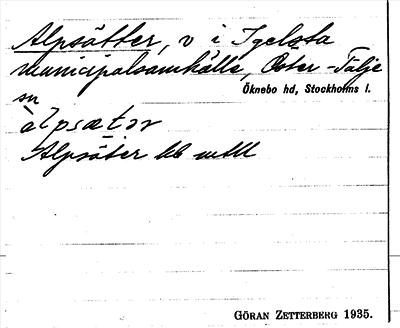 Alpsätter, v i Igelsta
municipalsamhälle, Öster-Tälje
sn
Öknebo hd, Stockholms l.
àlpsætər
Alpsäter
GÖRAN ZETTERBERG 1935.